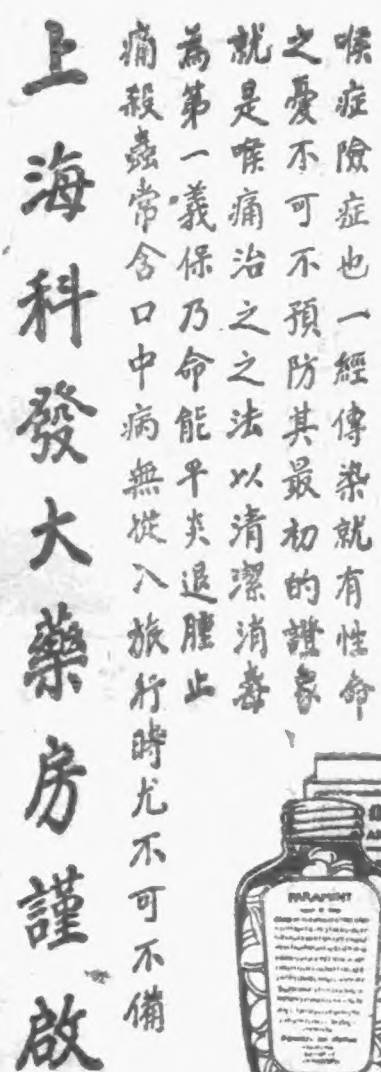 喉症險症也一經傳染就有性命
之憂不可不預防其最初的證象
就是喉痛治之之法以清潔消毒
為第一義保乃命能平炎退腫止
痛殺蟲常含口中病無從入旅行時尤不可不備
上海科發大藥房謹啟
PARAMINT